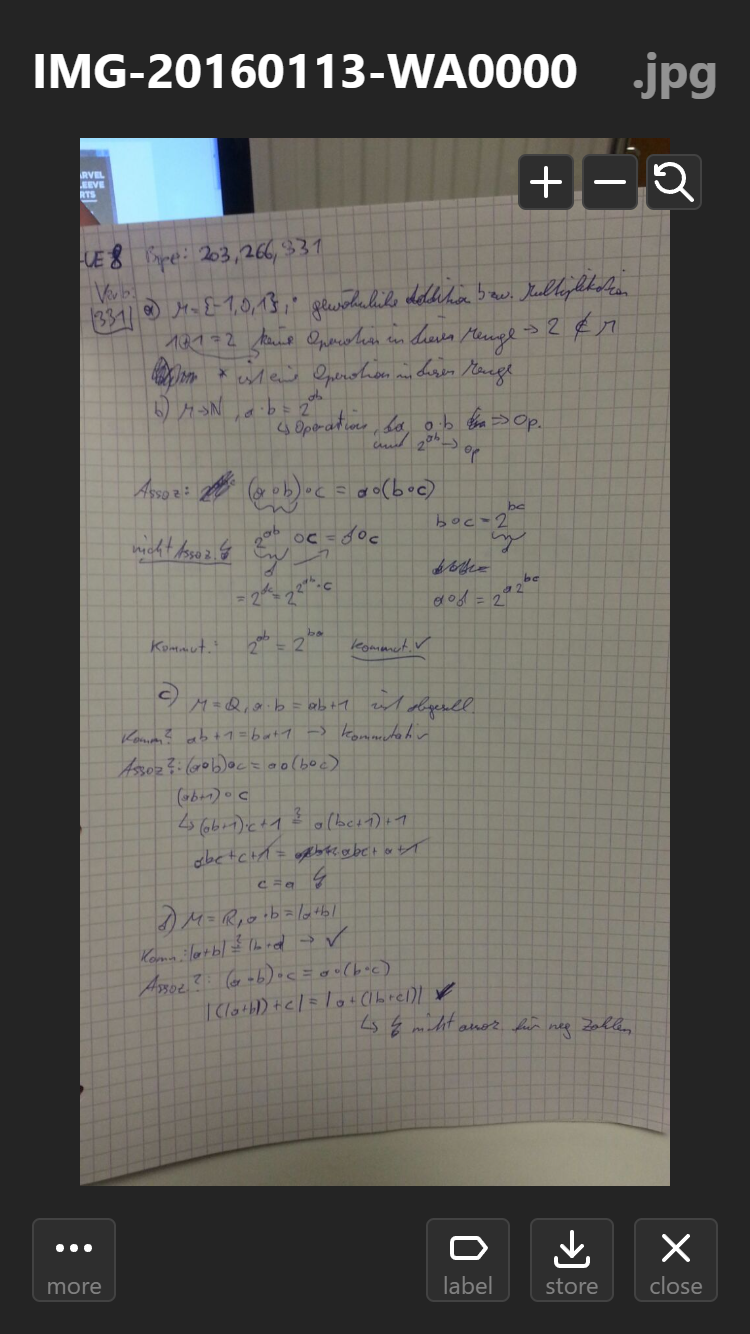 IMG-20160113-WA0000 .jpg
ARVEL
LEEVE
RTS
UE 8 Bspe: 203, 266, 331
331 a) M = {-1, 0, 1}, gewöhnliche Addition bzw. Multiplikation
1+1 = 2 keine Operation in dieser Menge → 2 ∉ M
* ist eine Operation in dieser Menge
b) M → N, a·b = 2^ab
↳ Operation, da a·b ⇒ Op.
und 2^ab → Op
Assoz: (a∘b)∘c = a∘(b∘c)
b∘c = 2^bc
nicht Assoz. ↯ 2^ab ∘c = d∘c
d
d
= 2^dc = 2^2^ab·c
a∘d = 2^a2^bc
Kommut.: 2^ab = 2^ba kommut. ✓
c) M = Q, a·b = ab+1 ist abgeschl.
Komm? ab+1 = ba+1 → kommutativ
Assoz?: (a∘b)∘c = a∘(b∘c)
(ab+1)∘c
↳ (ab+1)·c+1 ≟ a(bc+1)+1
abc+c+1 = abc+a+1
c = a ↯
d) M = R, a·b = |a+b|
Komm: |a+b| ≟ |b+a| → ✓
Assoz?: (a·b)∘c = a∘(b∘c)
|(|a+b|)+c| = |a+(|b+c|)|
↳ ↯ nicht assoz. für neg Zahlen
more
label
store
close